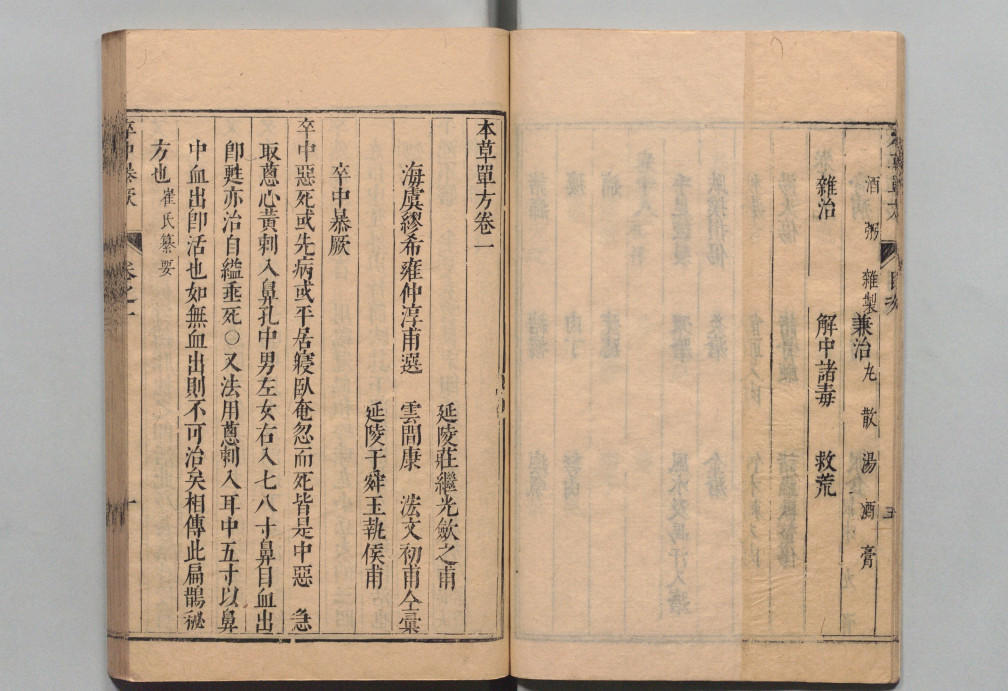 兼治
酒 粥 雜製 丸 散 湯 酒 膏
雜治 解中諸毒 救荒
本草單方卷一
延陵莊繼光斂之甫
海虞繆希雍仲淳甫選 雲間康 浤文初甫仝彙
延陵于舜玉執侯甫
卒中暴厥
卒中惡死或先病或平居寢臥奄忽而死皆是中惡 急
取蔥心黃刺入鼻孔中男左女右入七八寸鼻目血出
卽甦亦治自縊垂死〇又法用蔥刺入耳中五寸以鼻
中血出卽活也如無血出則不可治矣相傳此扁鵲祕
方也 崔氏纂要
卒中暴厥 卷之一